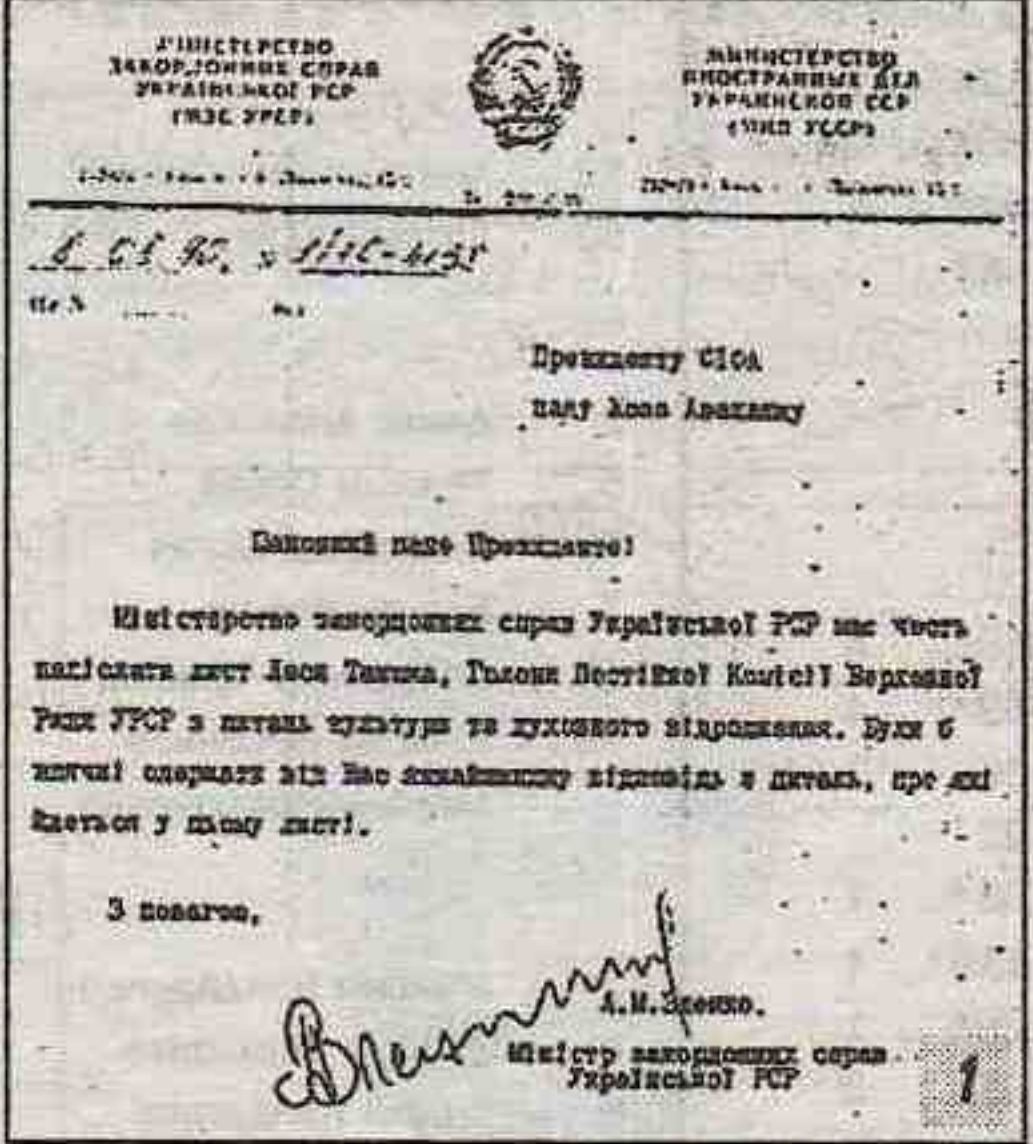 МІНІСТЕРСТВО
ЗАКОРДОННИХ СПРАВ
УКРАЇНСЬКОЇ РСР
(МЗС УРСР)
МИНИСТЕРСТВО
ИНОСТРАННЫХ ДЕЛ
УКРАИНСКОЙ ССР
(МИД УССР)
На №
Президенту
пану
Шановний пане Президенте!
Міністерство закордонних справ Української РСР має честь
надіслати лист Леся Танюка, Голови Постійної Комісії Верховної
Ради УРСР з питань культури та духовного відродження. Були б
вдячні одержати від Вас якнайшвидшу відповідь з питань, про які
йдеться у цьому листі.
З повагою,
А.М.Зленко.
Міністр закордонних справ
Української РСР
1